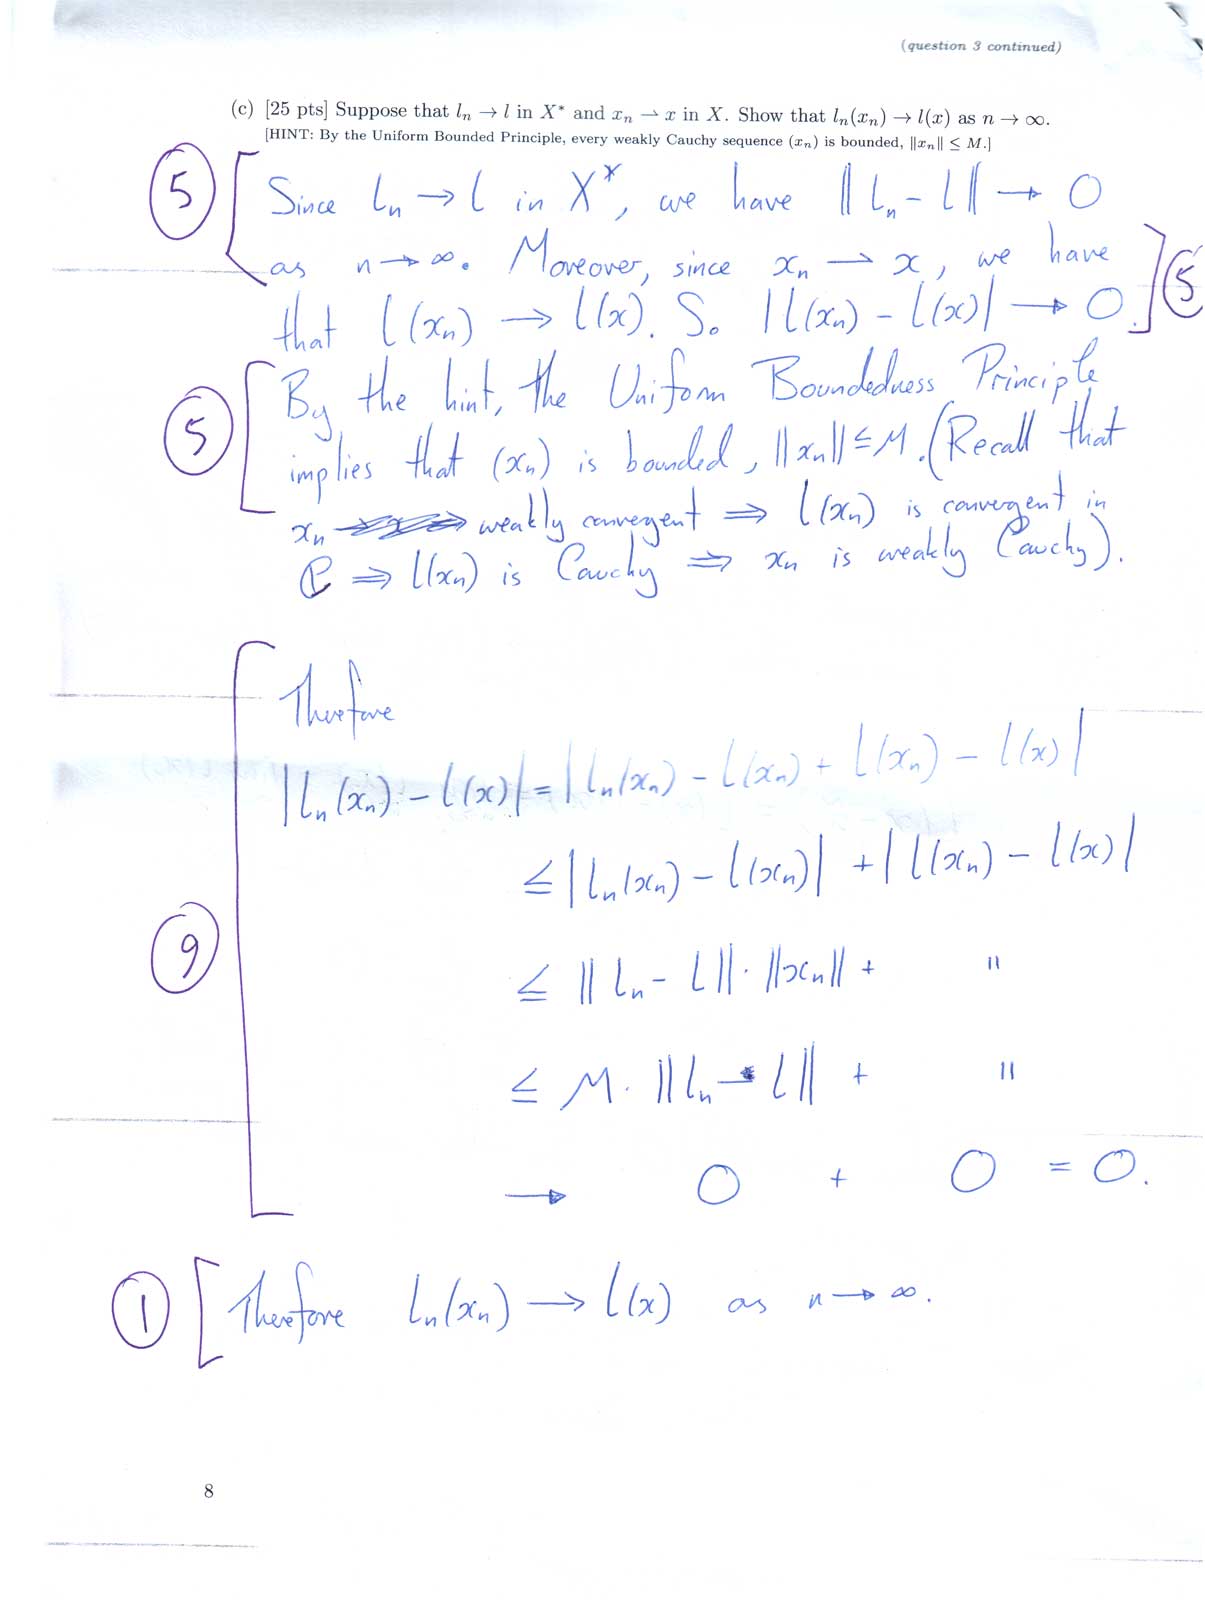 (question 3 continued)
(c) [25 pts] Suppose that lₙ → l in X* and xₙ ⇀ x in X. Show that lₙ(xₙ) → l(x) as n → ∞.
[HINT: By the Uniform Bounded Principle, every weakly Cauchy sequence (xₙ) is bounded, ‖xₙ‖ ≤ M.]
5 Since lₙ → l in X*, we have ‖lₙ - l‖ → 0
as n → ∞. Moreover, since xₙ ⇀ x, we have
that l(xₙ) → l(x). So |l(xₙ) - l(x)| → 0. 5
By the hint, the Uniform Boundedness Principle
5 implies that (xₙ) is bounded, ‖xₙ‖ ≤ M. (Recall that
xₙ weakly convergent ⇒ l(xₙ) is convergent in
ℂ ⇒ l(xₙ) is Cauchy ⇒ xₙ is weakly Cauchy).
Therefore
|lₙ(xₙ) - l(x)| = |lₙ(xₙ) - l(xₙ) + l(xₙ) - l(x)|
≤ |lₙ(xₙ) - l(xₙ)| + |l(xₙ) - l(x)|
9 ≤ ‖lₙ - l‖ · ‖xₙ‖ + "
≤ M · ‖lₙ - l‖ + "
→ 0 + 0 = 0.
1 Therefore lₙ(xₙ) → l(x) as n → ∞.
8